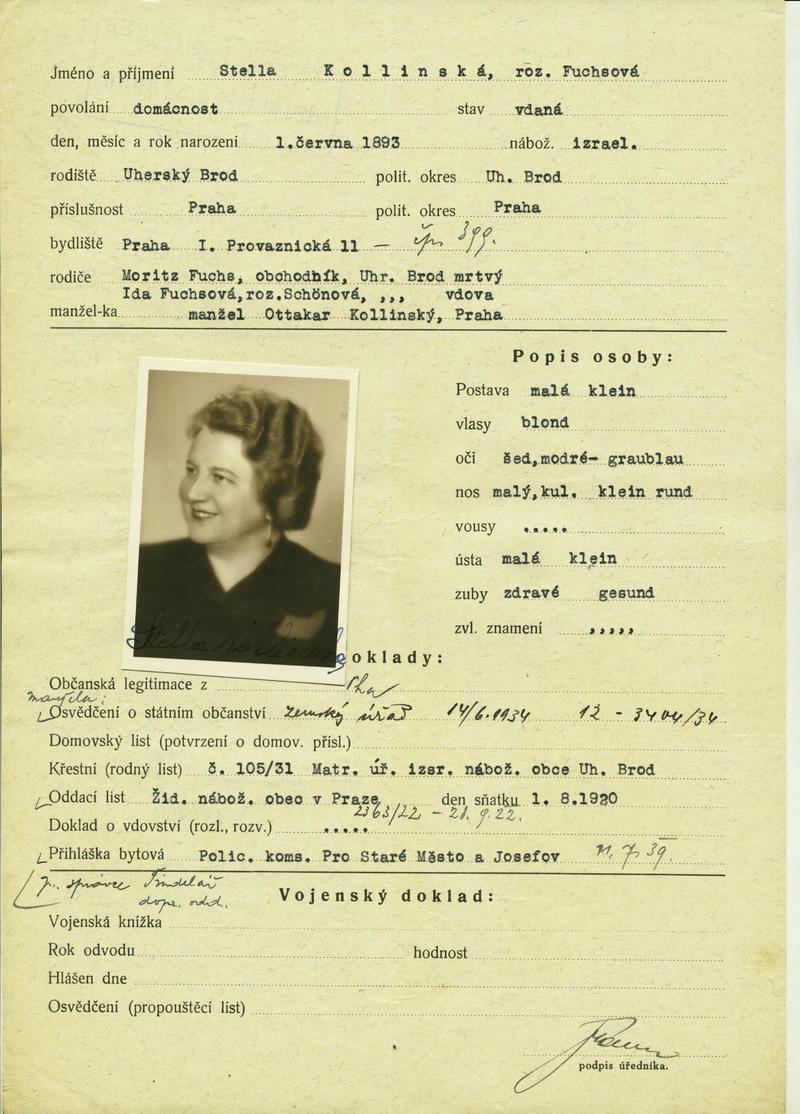 Jméno a příjmení Stella Kollinská, roz. Fuchsová
povolání domácnost stav vdaná
den, měsíc a rok narození 1.června 1893 nábož. izrael.
rodiště Uherský Brod polit. okres Uh. Brod
příslušnost Praha polit. okres Praha
bydliště Praha I. Provaznická 11 — čp. 399.
rodiče Moritz Fuchs, obchodník, Uhr. Brod mrtvý
Ida Fuchsová,roz.Schönová, ,,, vdova
manžel-ka manžel Ottakar Kollinský, Praha
Popis osoby:
Postava malá klein
vlasy blond
oči šed,modré- graublau
nos malý,kul. klein rund
vousy .....
ústa malá klein
zuby zdravé gesund
zvl. znamení ,,,,,
Stella Kollinská
oklady:
Občanská legitimace z Pha
manžela:
Osvědčení o státním občanství zemský úřad 14/6.1934 12 - 3404/34
Domovský list (potvrzení o domov. přísl.)
Křestní (rodný list) č. 105/31 Matr. úř. izsr. nábož. obce Uh. Brod
Oddací list Žid. nábož. obec v Praze den sňatku 1. 8.1920
2363/22 - 21. 9. 22.
Doklad o vdovství (rozl., rozv.) .....
Přihláška bytová Polic. koms. Pro Staré Město a Josefov 11. 7. 39.
správce
Vojenský doklad:
Vojenská knížka
Rok odvodu hodnost
Hlášen dne
Osvědčení (propouštěcí list)
podpis úředníka.